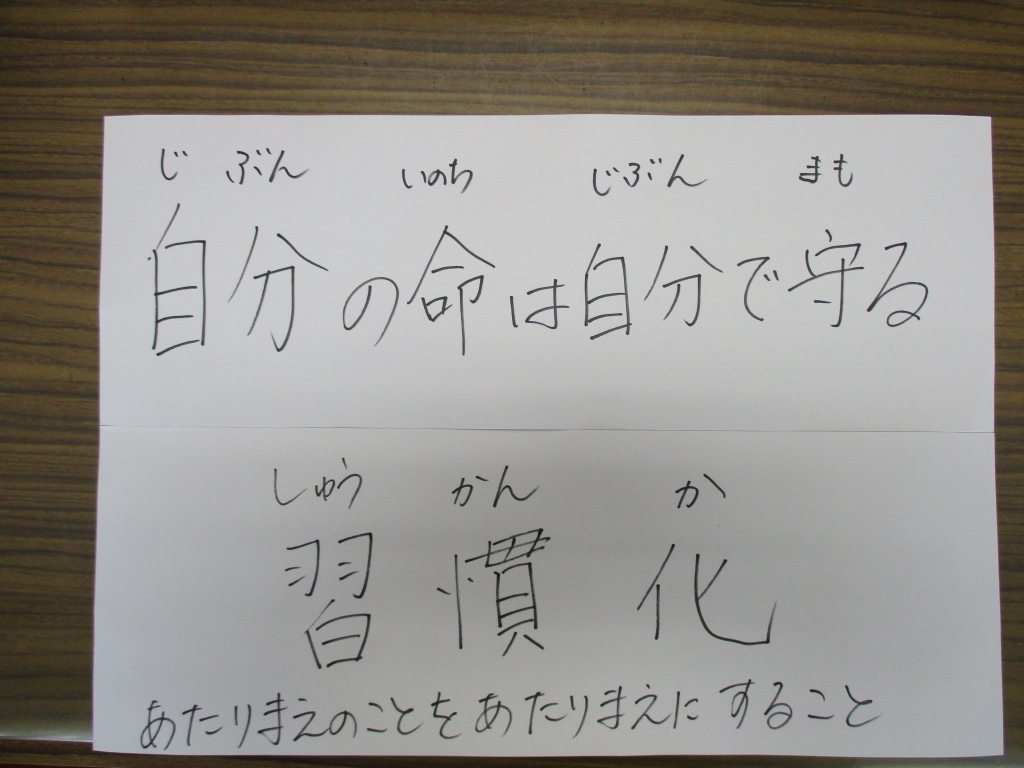 じ ぶん いのち じぶん まも
自分の命は自分で守る
しゅう かん か
習慣化
あたりまえのことをあたりまえにすること